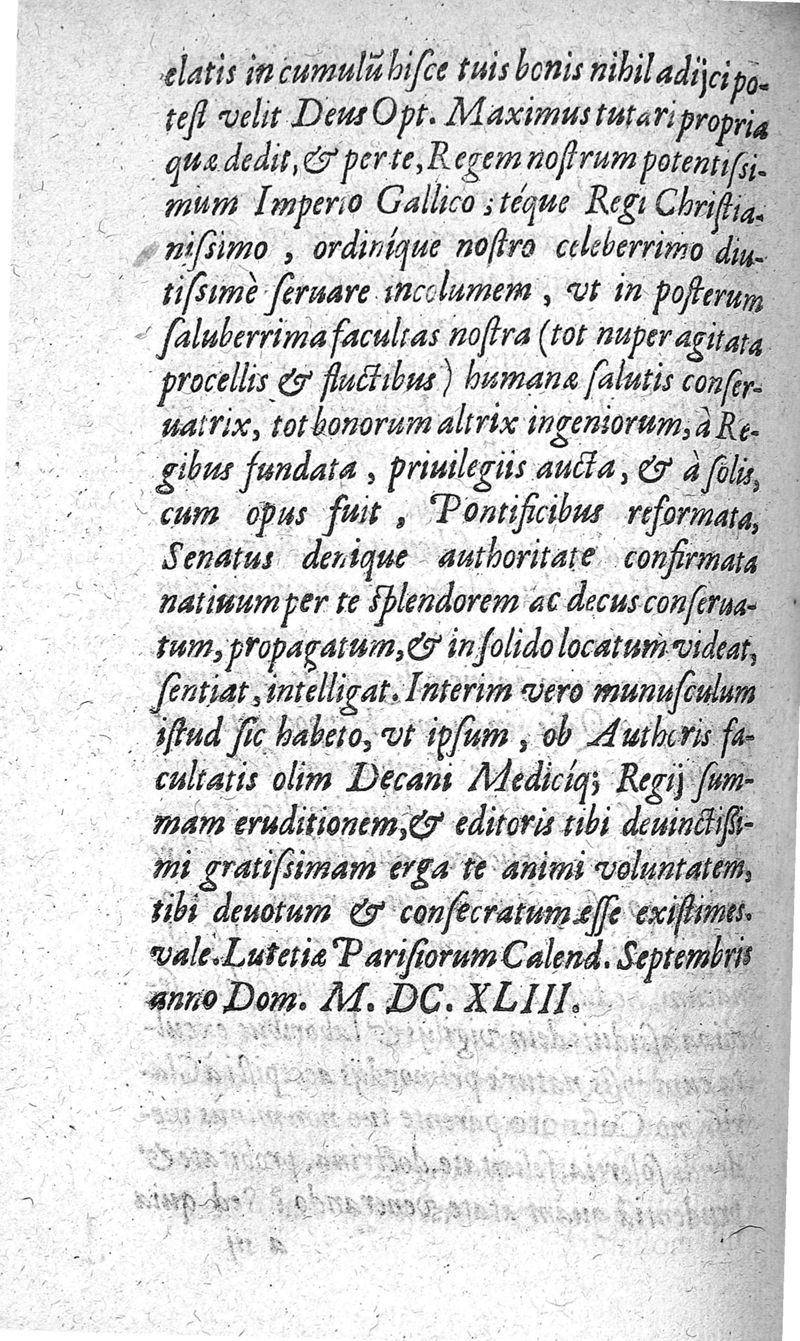 elatis in cumulũ hisce tuis bonis nihil adijci po-
test velit Deus Opt. Maximus tutari propria
quæ dedit, & per te, Regem nostrum potentissi-
mum Imperio Gallico ; téque Regi Christia-
nissimo , ordiníque nostro celeberrimo diu-
tissimè seruare incolumem , vt in posterum
saluberrima facultas nostra (tot nuper agitata
procellis & fluctibus) humanæ salutis conser-
uatrix, tot bonorum altrix ingeniorum, à Re-
gibus fundata , priuilegiis aucta, & à solis,
cum opus fuit , Pontificibus reformata,
Senatus denique authoritate confirmata
natiuum per te splendorem ac decus conserua-
tum, propagatum, & in solido locatum videat,
sentiat, intelligat. Interim vero munusculum
istud sic habeto, vt ipsum , ob Authoris fa-
cultatis olim Decani Medicíq; Regij sum-
mam eruditionem, & editoris tibi deuinctissi-
mi gratissimam erga te animi voluntatem,
tibi deuotum & consecratum esse existimes.
vale. Lutetiæ Parisiorum Calend. Septembris
anno Dom. M. DC. XLIII.